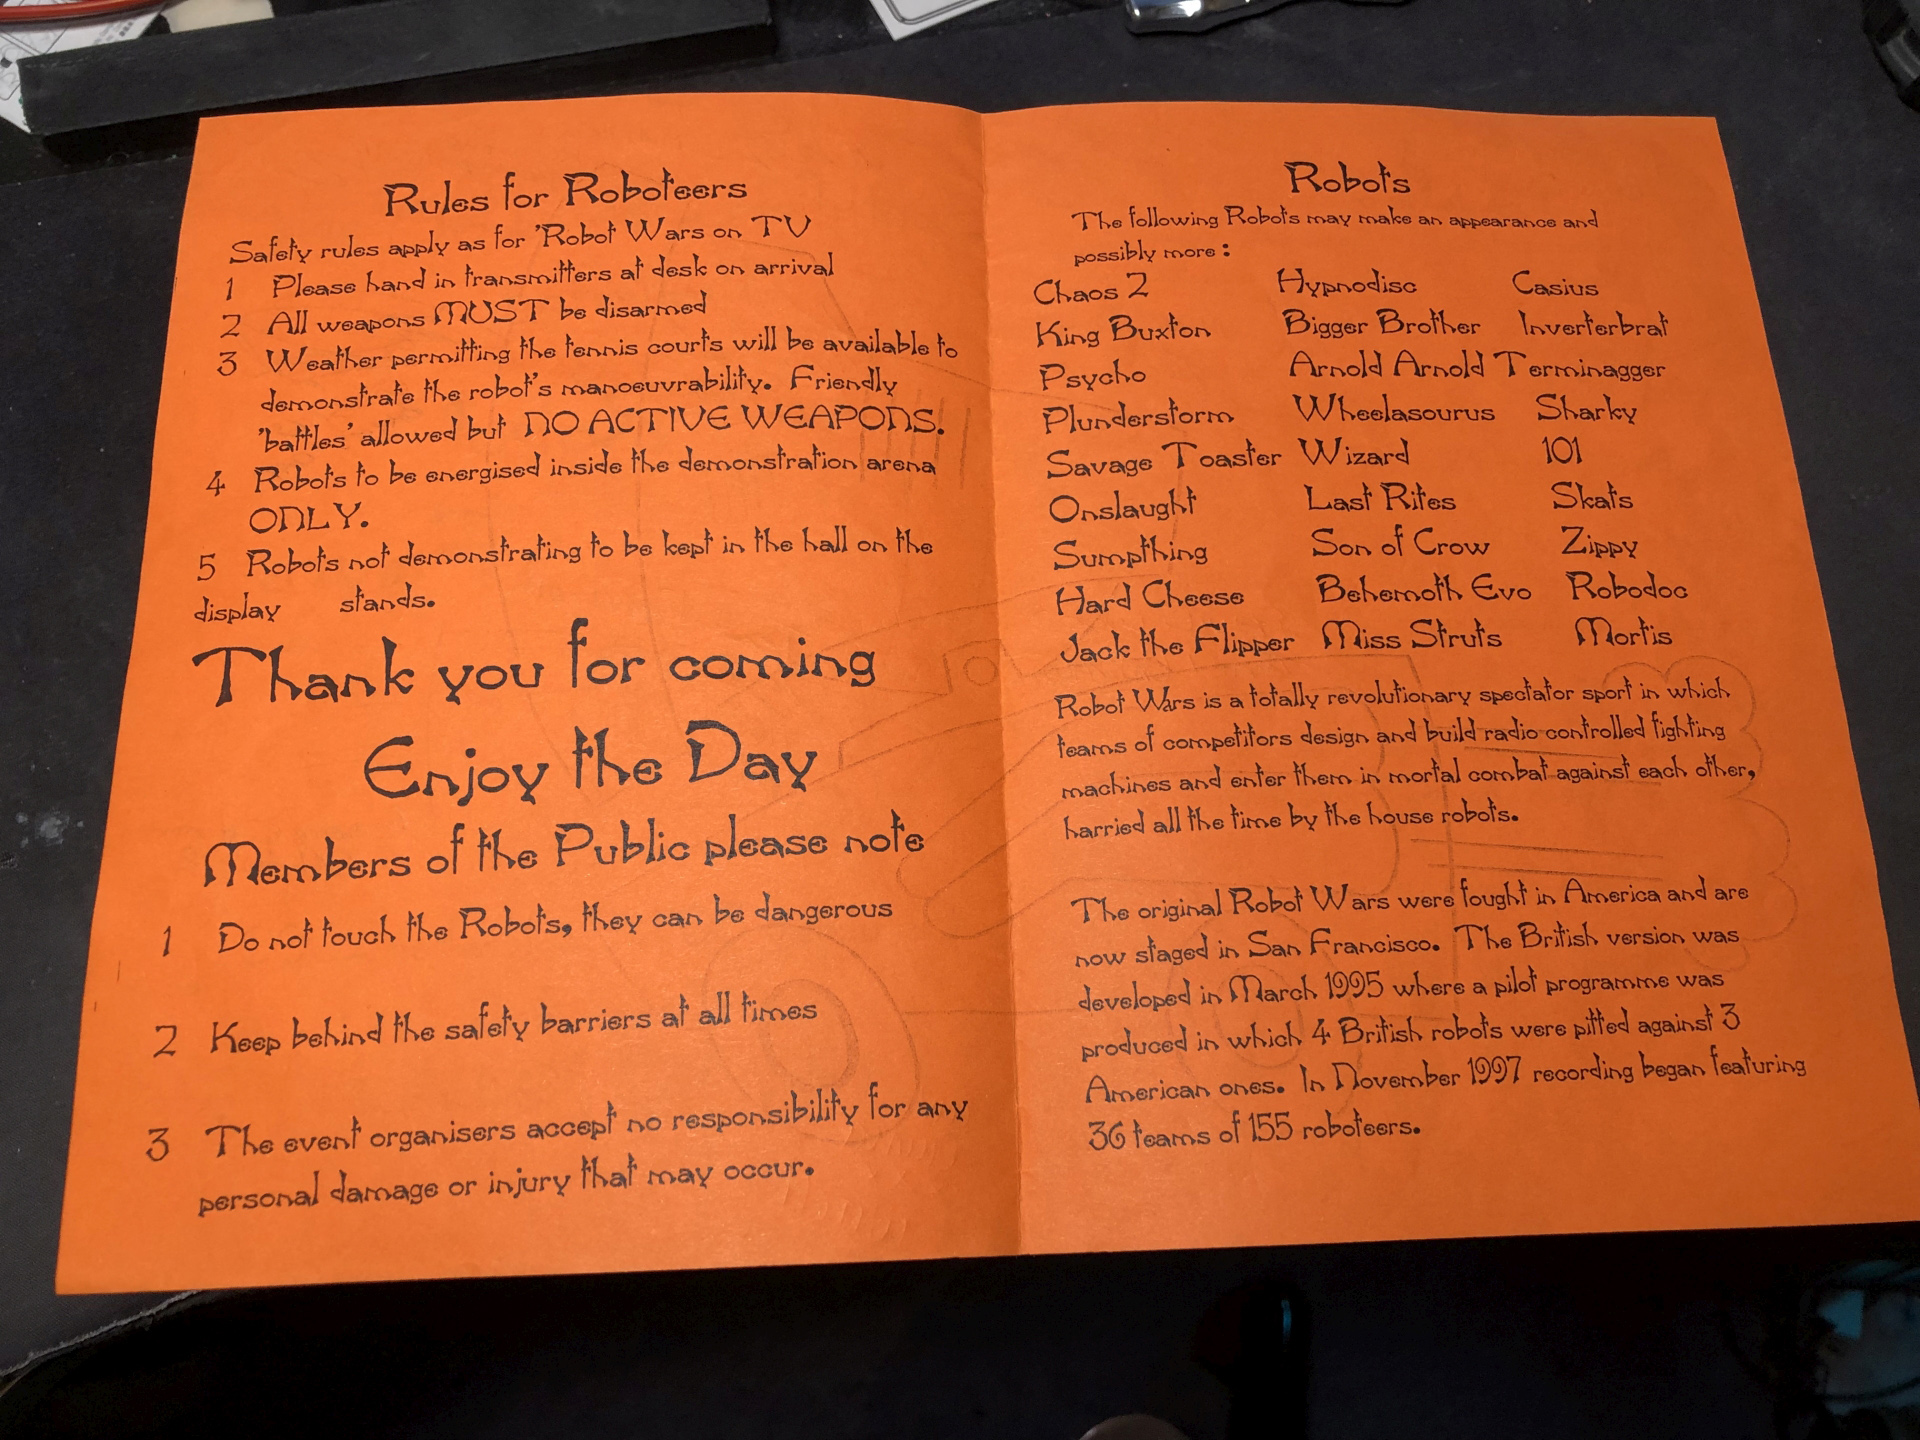 Rules for Roboteers
Safety rules apply as for 'Robot Wars on TV
1 Please hand in transmitters at desk on arrival
2 All weapons MUST be disarmed
3 Weather permitting the tennis courts will be available to
demonstrate the robot's manoeuvrability. Friendly
'battles' allowed but NO ACTIVE WEAPONS.
4 Robots to be energised inside the demonstration arena
ONLY.
5 Robots not demonstrating to be kept in the hall on the
display stands.
Thank you for coming
Enjoy the Day
Members of the Public please note
1 Do not touch the Robots, they can be dangerous
2 Keep behind the safety barriers at all times
3 The event organisers accept no responsibility for any
personal damage or injury that may occur.
Robots
The following Robots may make an appearance and
possibly more :
Chaos 2 Hypnodisc Casius
King Buxton Bigger Brother Inverterbrat
Psycho Arnold Arnold Terminagger
Plunderstorm Wheelasourus Sharky
Savage Toaster Wizard 101
Onslaught Last Rites Skats
Sumpthing Son of Crow Zippy
Hard Cheese Behemoth Evo Robodoc
Jack the Flipper Miss Struts Mortis
Robot Wars is a totally revolutionary spectator sport in which
teams of competitors design and build radio controlled fighting
machines and enter them in mortal combat against each other,
harried all the time by the house robots.
The original Robot Wars were fought in America and are
now staged in San Francisco. The British version was
developed in March 1995 where a pilot programme was
produced in which 4 British robots were pitted against 3
American ones. In November 1997 recording began featuring
36 teams of 155 roboteers.